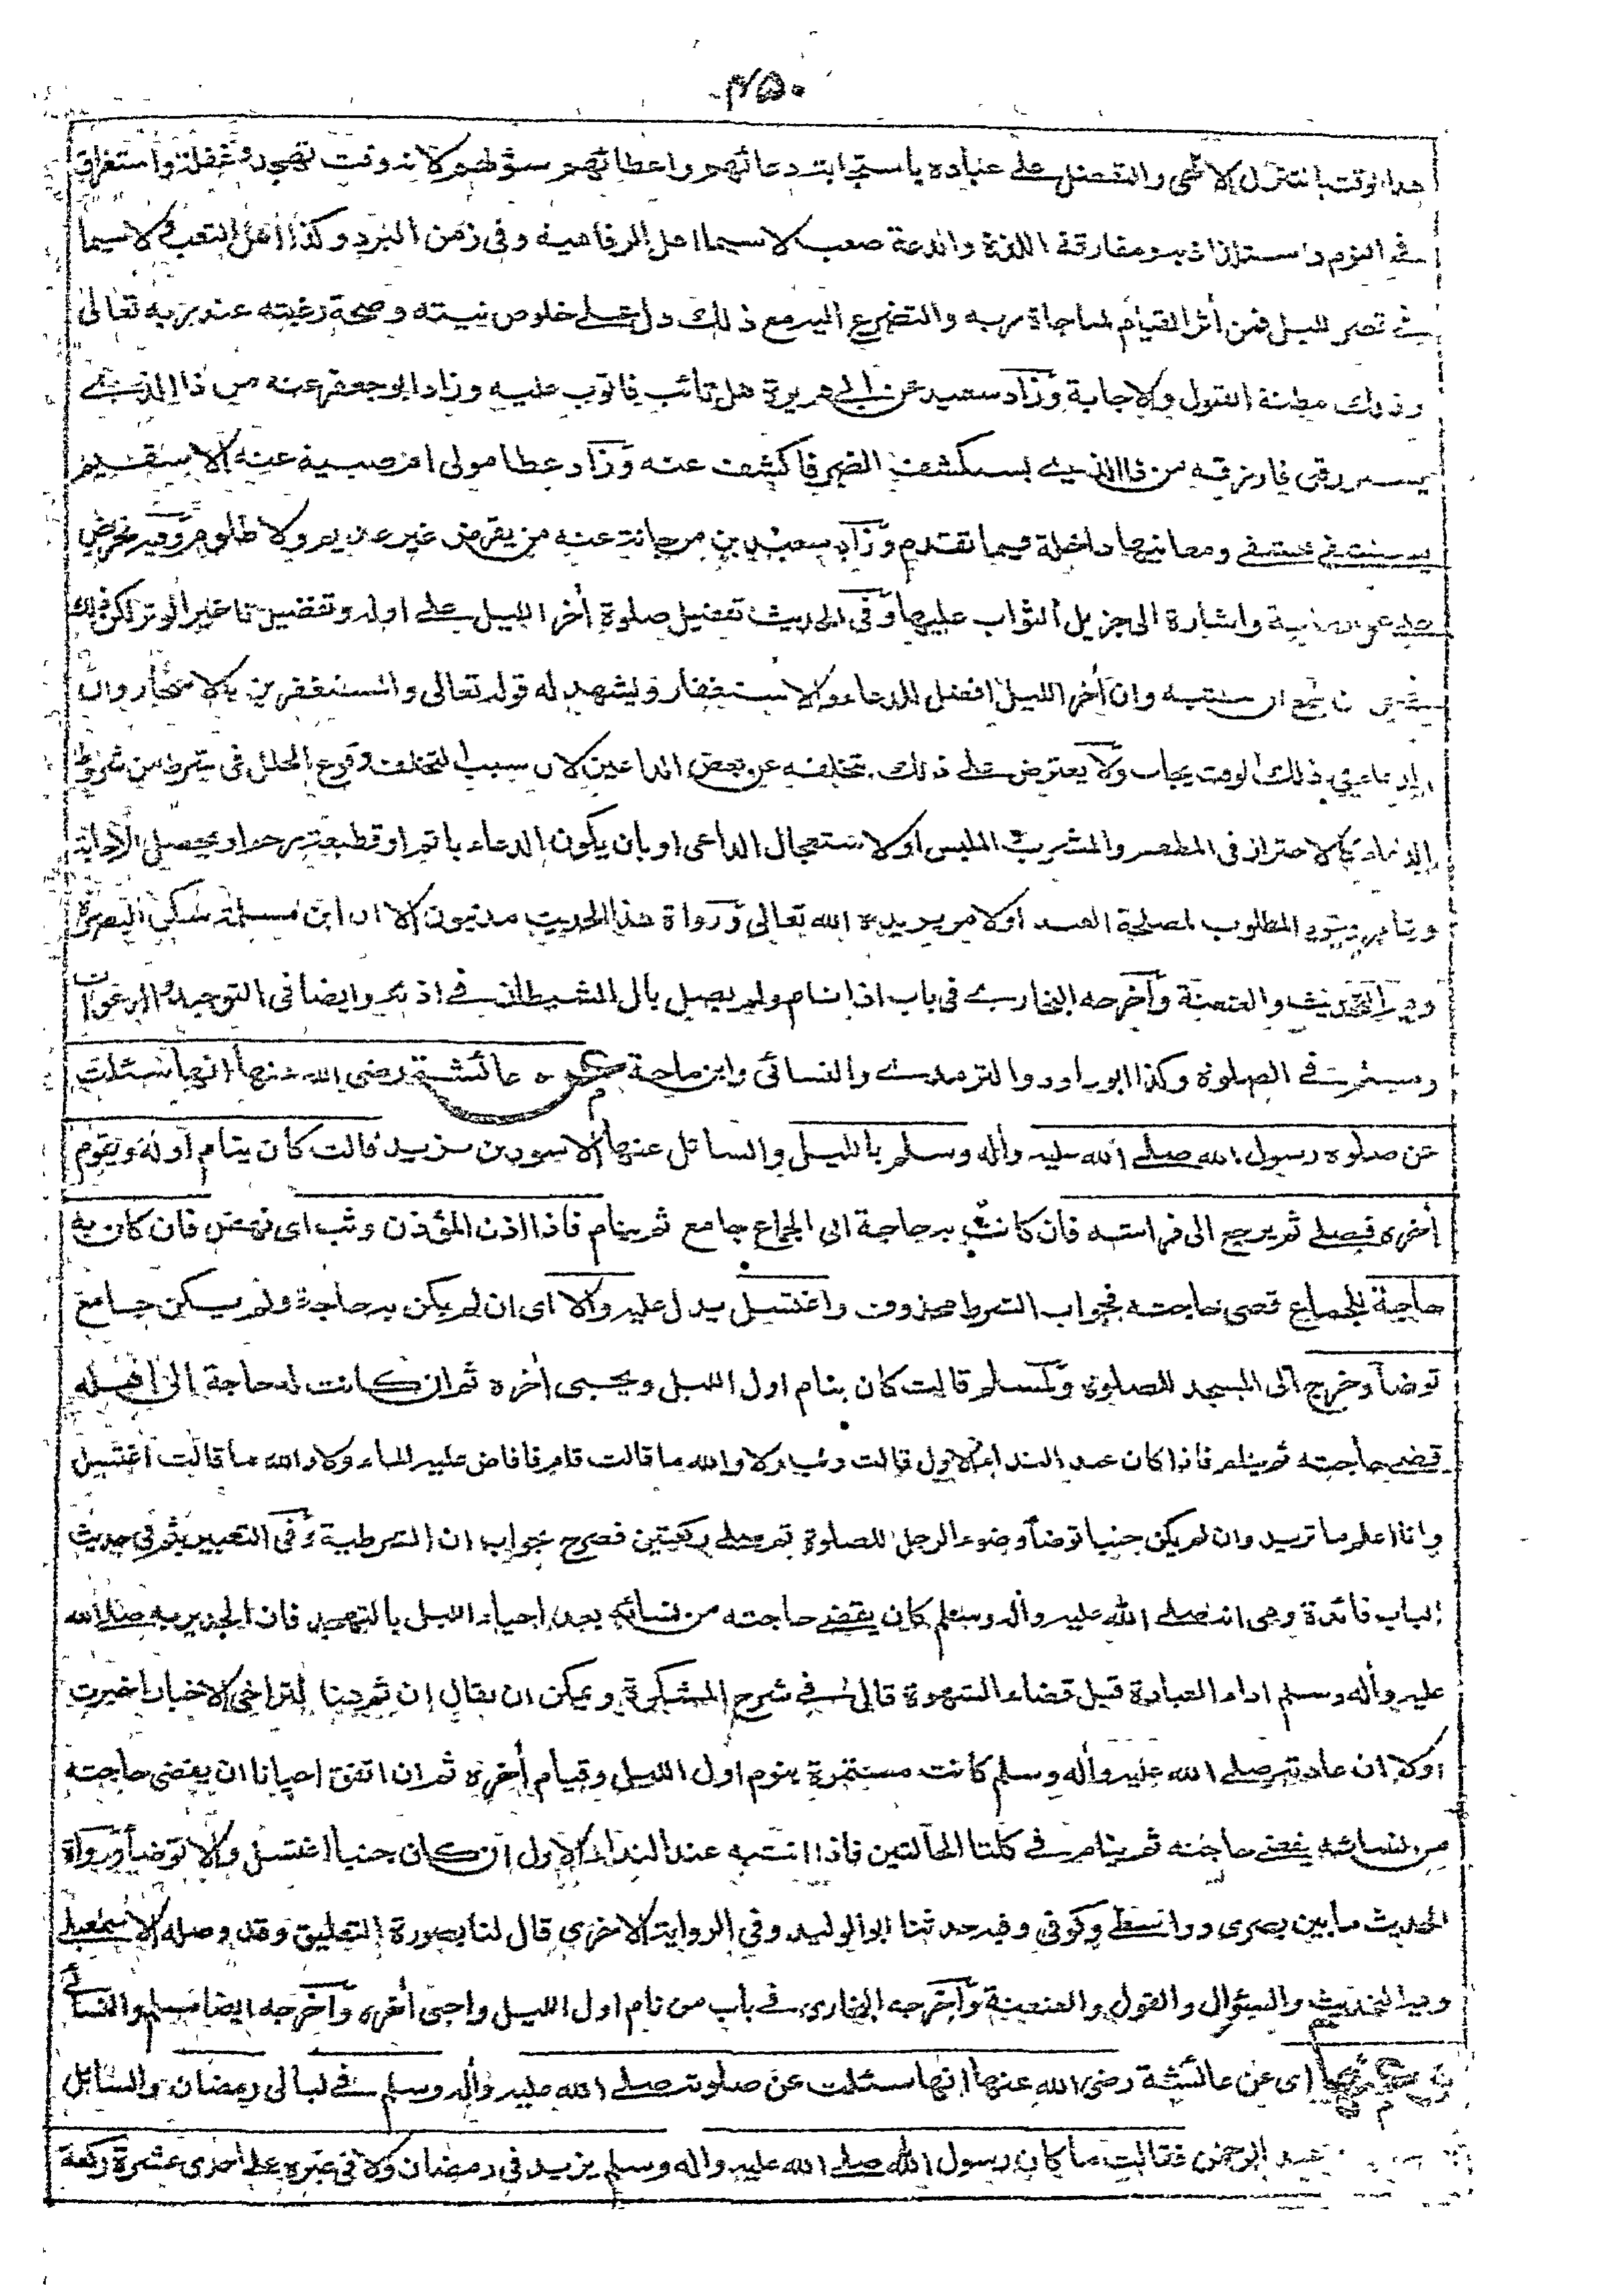 ٢٥٠
هذا الوقت بالتنزل الالهى والتفضل على عباده باستجابة دعائهم واعطائهم سؤلهم لانه وقت تهجد وغفلة واستغراق
فى النوم واستلذاذ به ومفارقة اللذة والدعة صعب لاسيما اهل الرفاهية وفى زمن البرد وكذا اهل التعب ولاسيما
فى قصر الليل فمن أثر القيام لمناجاة ربه والتضرع اليه مع ذلك دل على خلوص نيته وصحة رغبته عند ربه تعالى
وذلك مظنة القبول والاجابة وزاد سعيد عن ابى هريرة هل تائب فاتوب عليه وزاد ابو جعفر عنه من ذا الذى
يسترزقنى فارزقه من ذا الذى يستكشف الضر فاكشف عنه وزاد عطا مولى ام صبية عنه الا سقيم
يستشفى فيشفى ومعانيها داخلة فيما تقدم وزاد سعيد بن مرجانة عنه من يقرض غير عديم ولا ظلوم وفيه تحريض
على عمل الطاعة واشارة الى جزيل الثواب عليها وفى الحديث تفضيل صلوة أخر الليل على اوله وتفضيل تاخير الوتر لكن ذلك
فى حق من طمع ان ينتبه وان أخر الليل افضل للدعاء والاستغفار ويشهد له قوله تعالى والمستغفرين بالاسحار وان
الدعاء فى ذلك الوقت يجاب ولا يعترض على ذلك بتخلفه عن بعض الداعين لان سبب التخلف وقوع الخلل فى شرط من شروط
الدعاء كالاحتراز فى المطعم والمشرب والملبس او لاستعجال الداعى او بان يكون الدعاء باثم او قطيعة رحم او يحصل الاجابة
ويتاخر وجود المطلوب لمصلحة العبد او لامر يريده الله تعالى ورواة هذا الحديث مدنيون الا ان ابن مسلمة سكن البصرة
وفيه التحديث والعنعنة وأخرجه البخارى فى باب اذا نام ولم يصل بال الشيطان فى اذنه وايضا فى التوحيد والدعوات
ومسلم فى الصلوة وكذا ابو داود والترمذى والنسائى وابن ماجة عن عائشة رضى الله عنها انها سئلت
عن صلوة رسول الله صلى الله عليه وأله وسلم بالليل والسائل عنها الاسود بن يزيد قالت كان ينام اوله ويقوم
أخره فيصلى ثم يرجع الى فراشه فان كانت به حاجة الى الجماع جامع ثم ينام فاذا اذن المؤذن وثب اى نهض فان كان به
حاجة للجماع قضى حاجته فجواب الشرط محذوف واغتسل يدل عليه والا اى ان لم يكن به حاجة ولم يكن جامع
توضأ وخرج الى المسجد للصلوة ولمسلم قالت كان ينام اول الليل ويحيى أخره ثم ان كانت له حاجة الى اهله
قضى حاجته ثم ينام فاذا كان عند النداء الاول قالت وثب ولا والله ما قالت قام فافاض عليه الماء ولا والله ما قالت اغتسل
وانا اعلم ما تريد وان لم يكن جنبا توضأ وضوء الرجل للصلوة ثم صلى ركعتين فصرح بجواب ان الشرطية وفى التعبير بثم فى حديث
الباب فائدة وهى انه صلى الله عليه وأله وسلم كان يقضى حاجته من نسائه بعد احياء الليل بالتهجد فان الجدير به صلى الله
عليه وأله وسلم اداء العبادة قبل قضاء الشهوة قال فى شرح المشكوة ويمكن ان يقال ان ثم هنا لتراخى الاخبار اخبرت
اولا ان عادته صلى الله عليه وأله وسلم كانت مستمرة بنوم اول الليل وقيام أخره ثم ان اتفق احيانا ان يقضى حاجته
من نسائه يقضى حاجته ثم ينام فى كلتا الحالتين فاذا انتبه عند النداء الاول ان كان جنبا اغتسل والا توضأ ورواة
الحديث ما بين بصرى وواسطى وكوفى وفيه حدثنا ابو الوليد وفى الرواية الاخرى قال لنا بصورة التعليق وقد وصله الاسمعيلى
وفيه التحديث والسؤال والقول والعنعنة وأخرجه البخارى فى باب من نام اول الليل واحيى أخره وأخرجه ايضا مسلم والنسائى
وعنها اى عن عائشة رضى الله عنها انها سئلت عن صلوته صلى الله عليه وأله وسلم فى ليالى رمضان والسائل
عبد الرحمن فقالت ما كان رسول الله صلى الله عليه واله وسلم يزيد فى رمضان ولا فى غيره على احدى عشرة ركعة